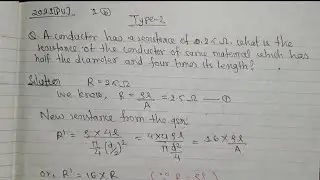 2021[PU] 1 (b)
Type-2
Q. A conductor has a resistance of 0.25 Ω. what is the
resistance of the conductor of same material which has
half the diameter and four times its length?
Solution R = 25 Ω
we know, R = ρl/A = 25 Ω — ①
New resistance from the qsn
R' = ρ×4l / π/4 (d/2)² = 4×4ρl / πd²/4 = 16 × ρl/A
or, R' = 16 × R